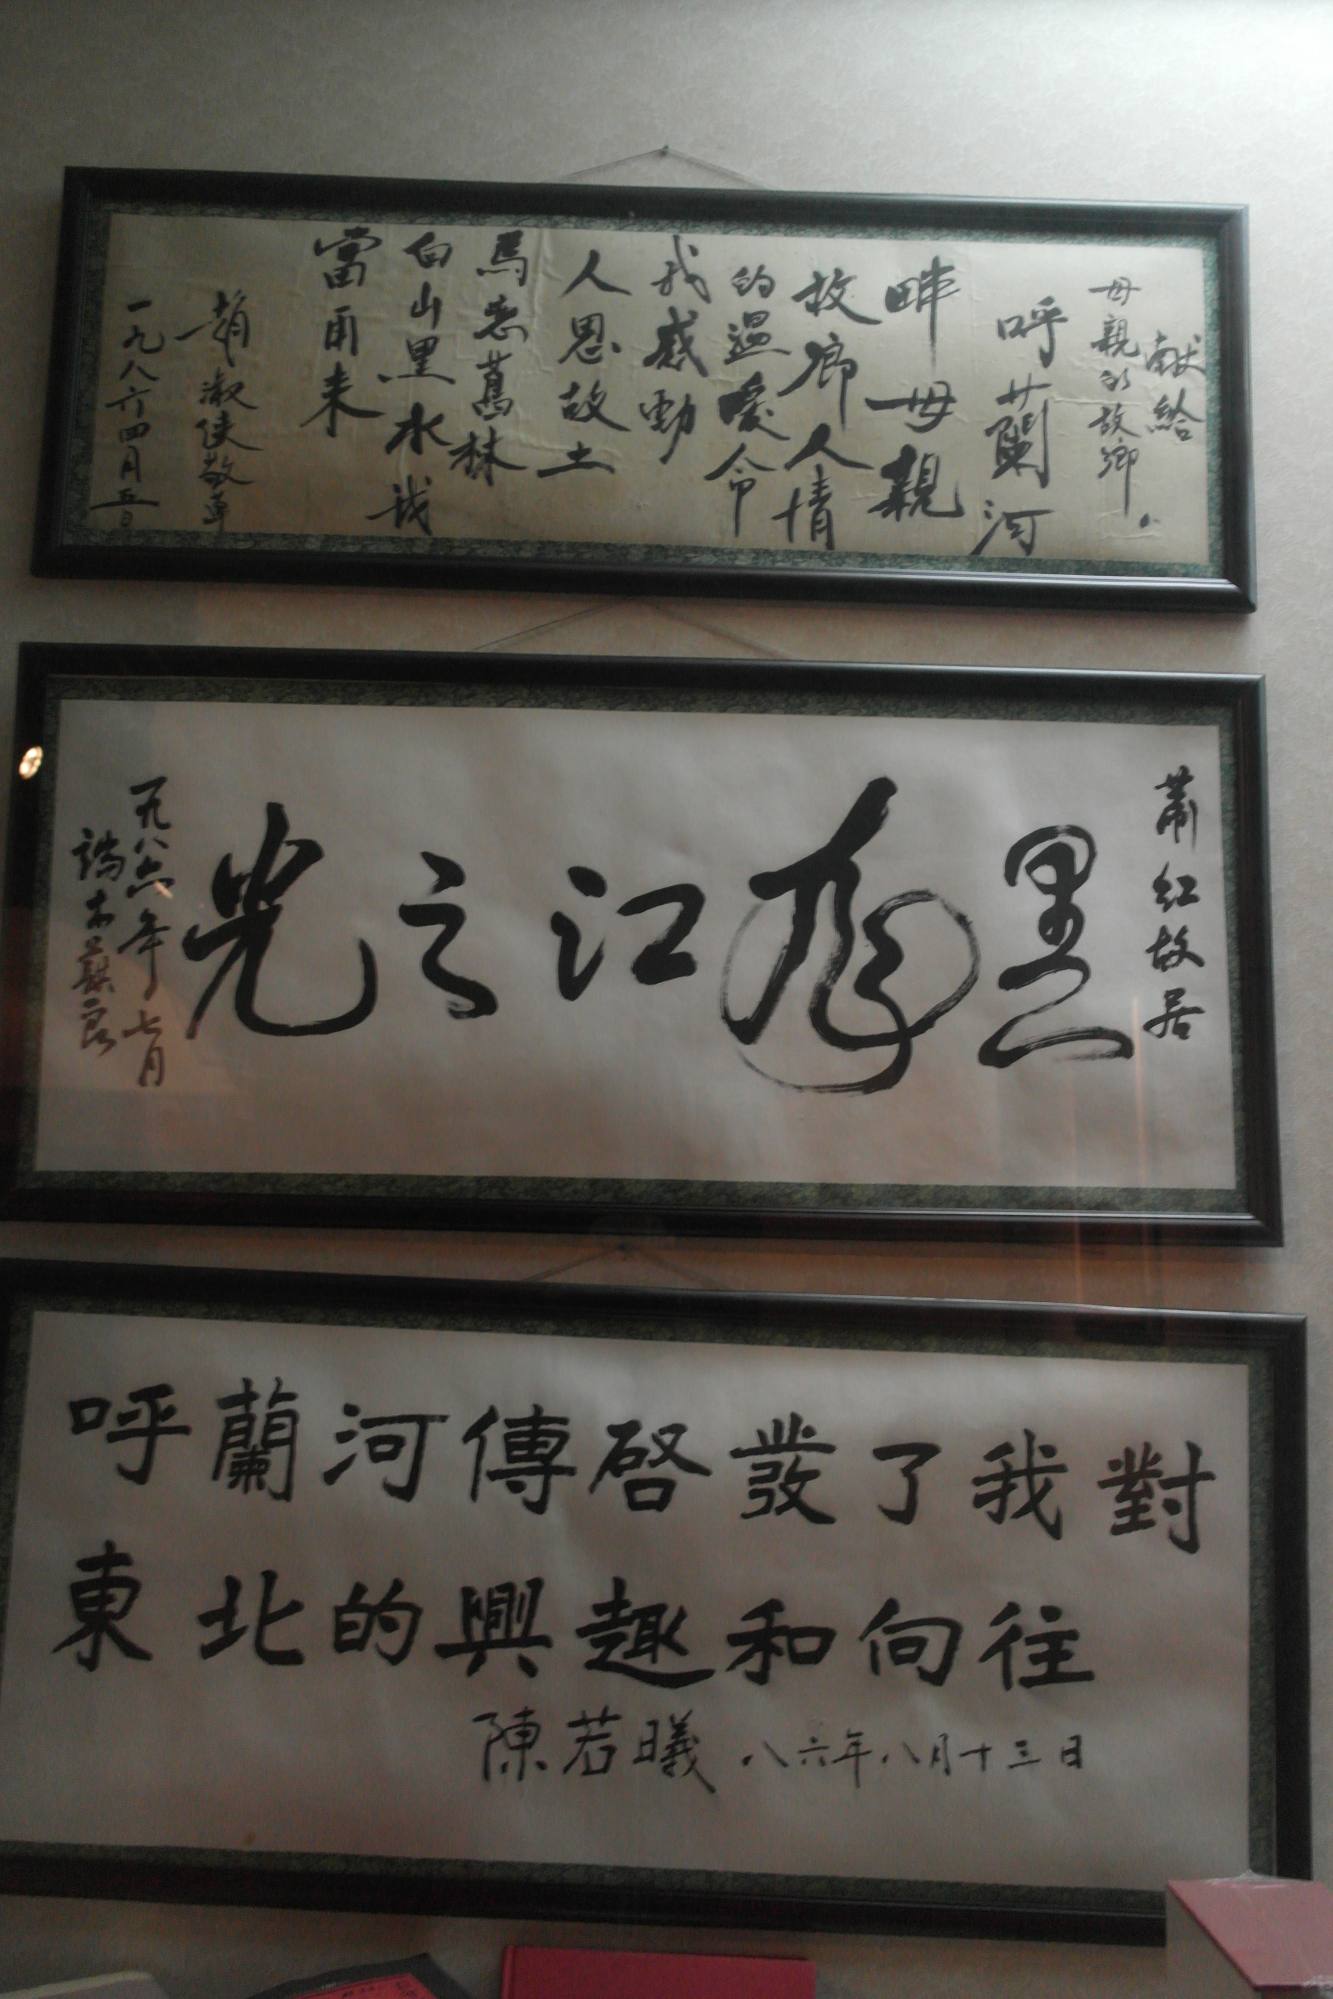 献給
母親的故鄉
呼蘭河
畔母親
故鄉人情
的溫愛令
我感動
人恩故土
馬恋舊林
白山黑水我
當再来
趙淑俠敬筆
一九八六四月五日
蕭紅故居
黑龍江之光
一九八六年七月
端木蕻良
呼蘭河傳啓發了我對
東北的興趣和向往
陳若曦 八六年八月十三日